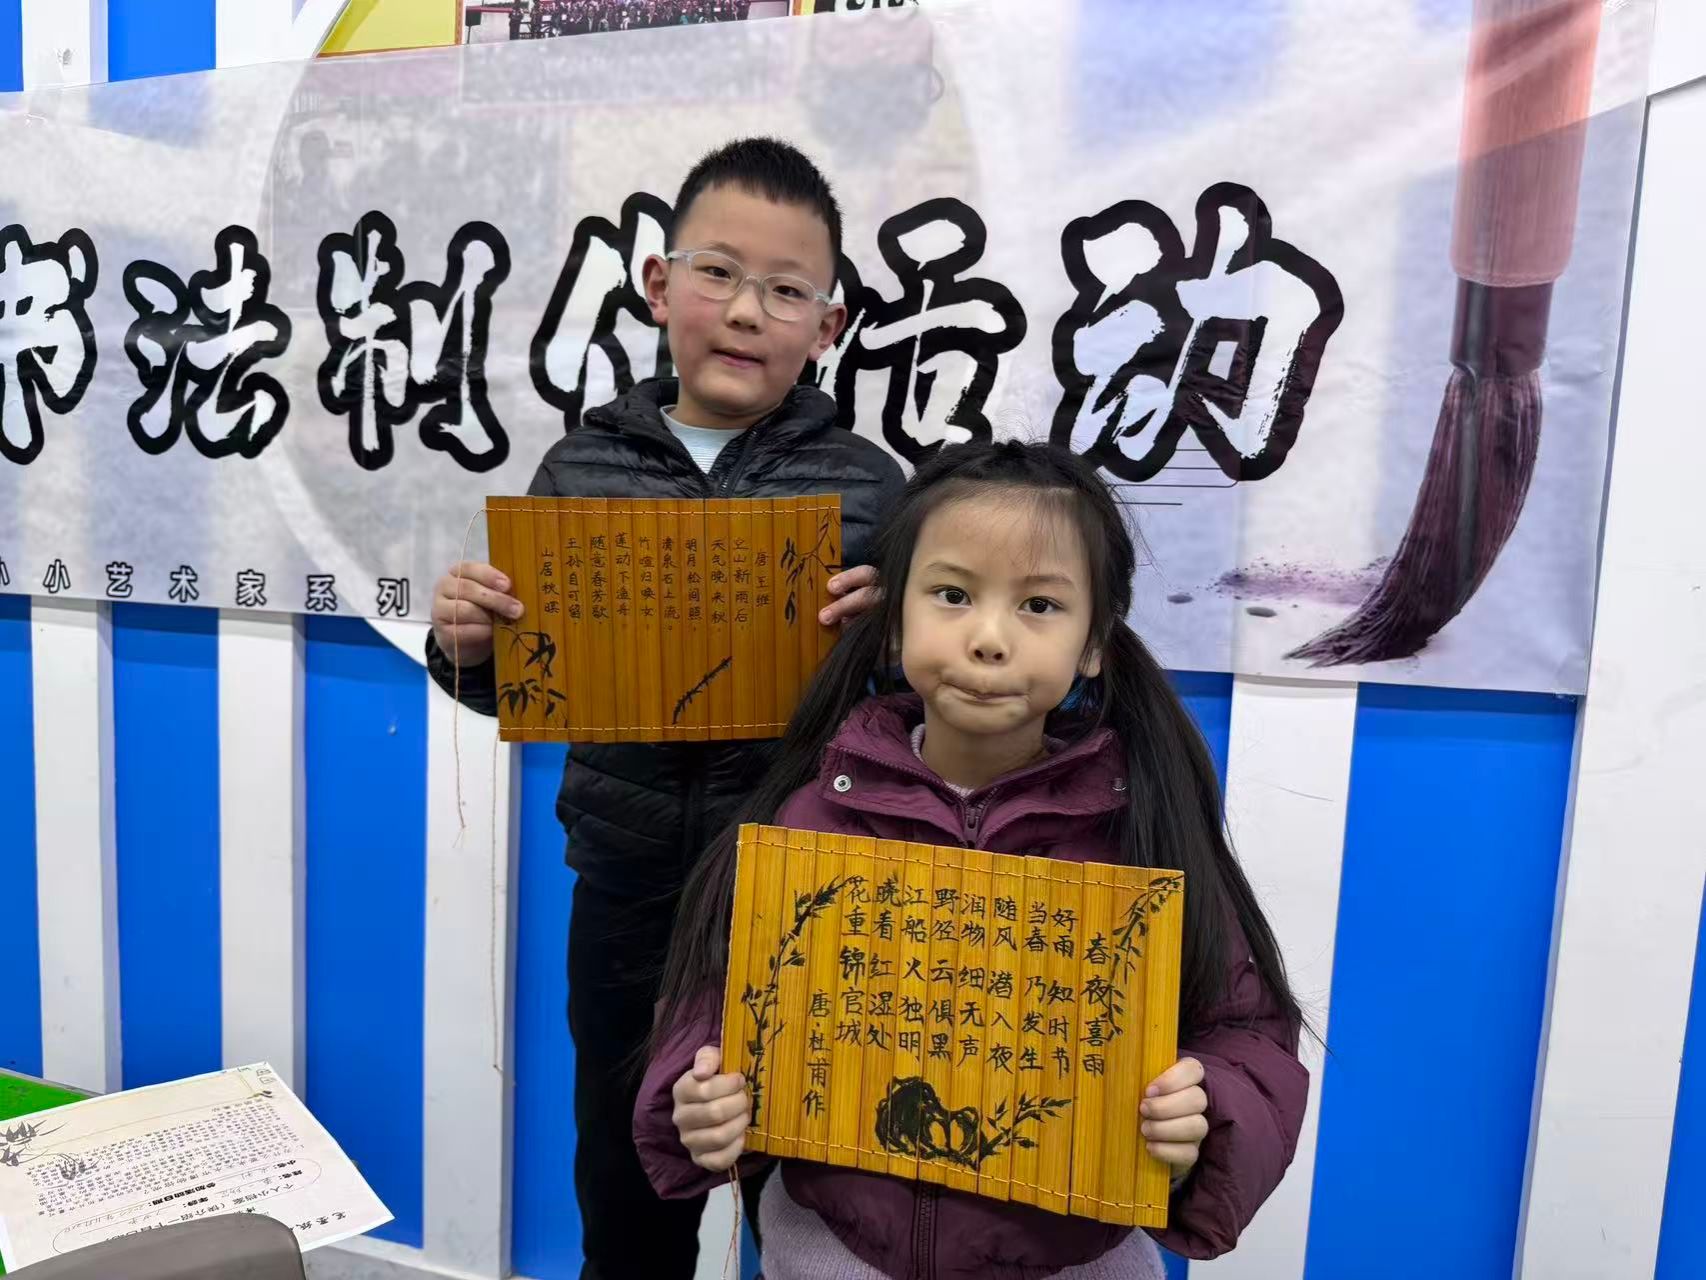 书法制作活动
小小艺术家系列
唐王维
空山新雨后,
天气晚来秋。
明月松间照,
清泉石上流。
竹喧归唤女,
莲动下渔舟。
随意春芳歇,
王孙自可留。
山居秋暝
春夜喜雨
好雨知时节
当春乃发生
随风潜入夜
润物细无声
野径云俱黑
江船火独明
晓看红湿处
花重锦官城
唐·杜甫作